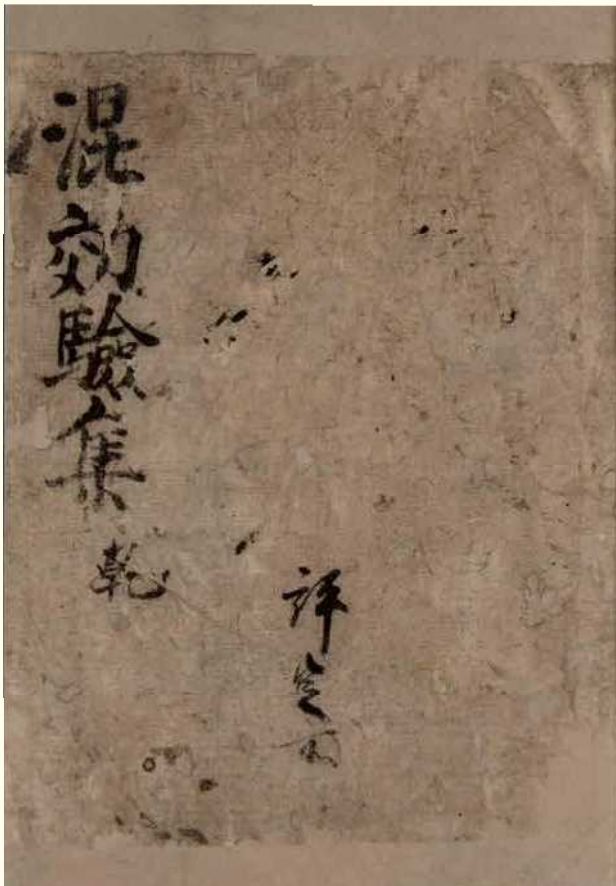 混効驗集
乾
評定所